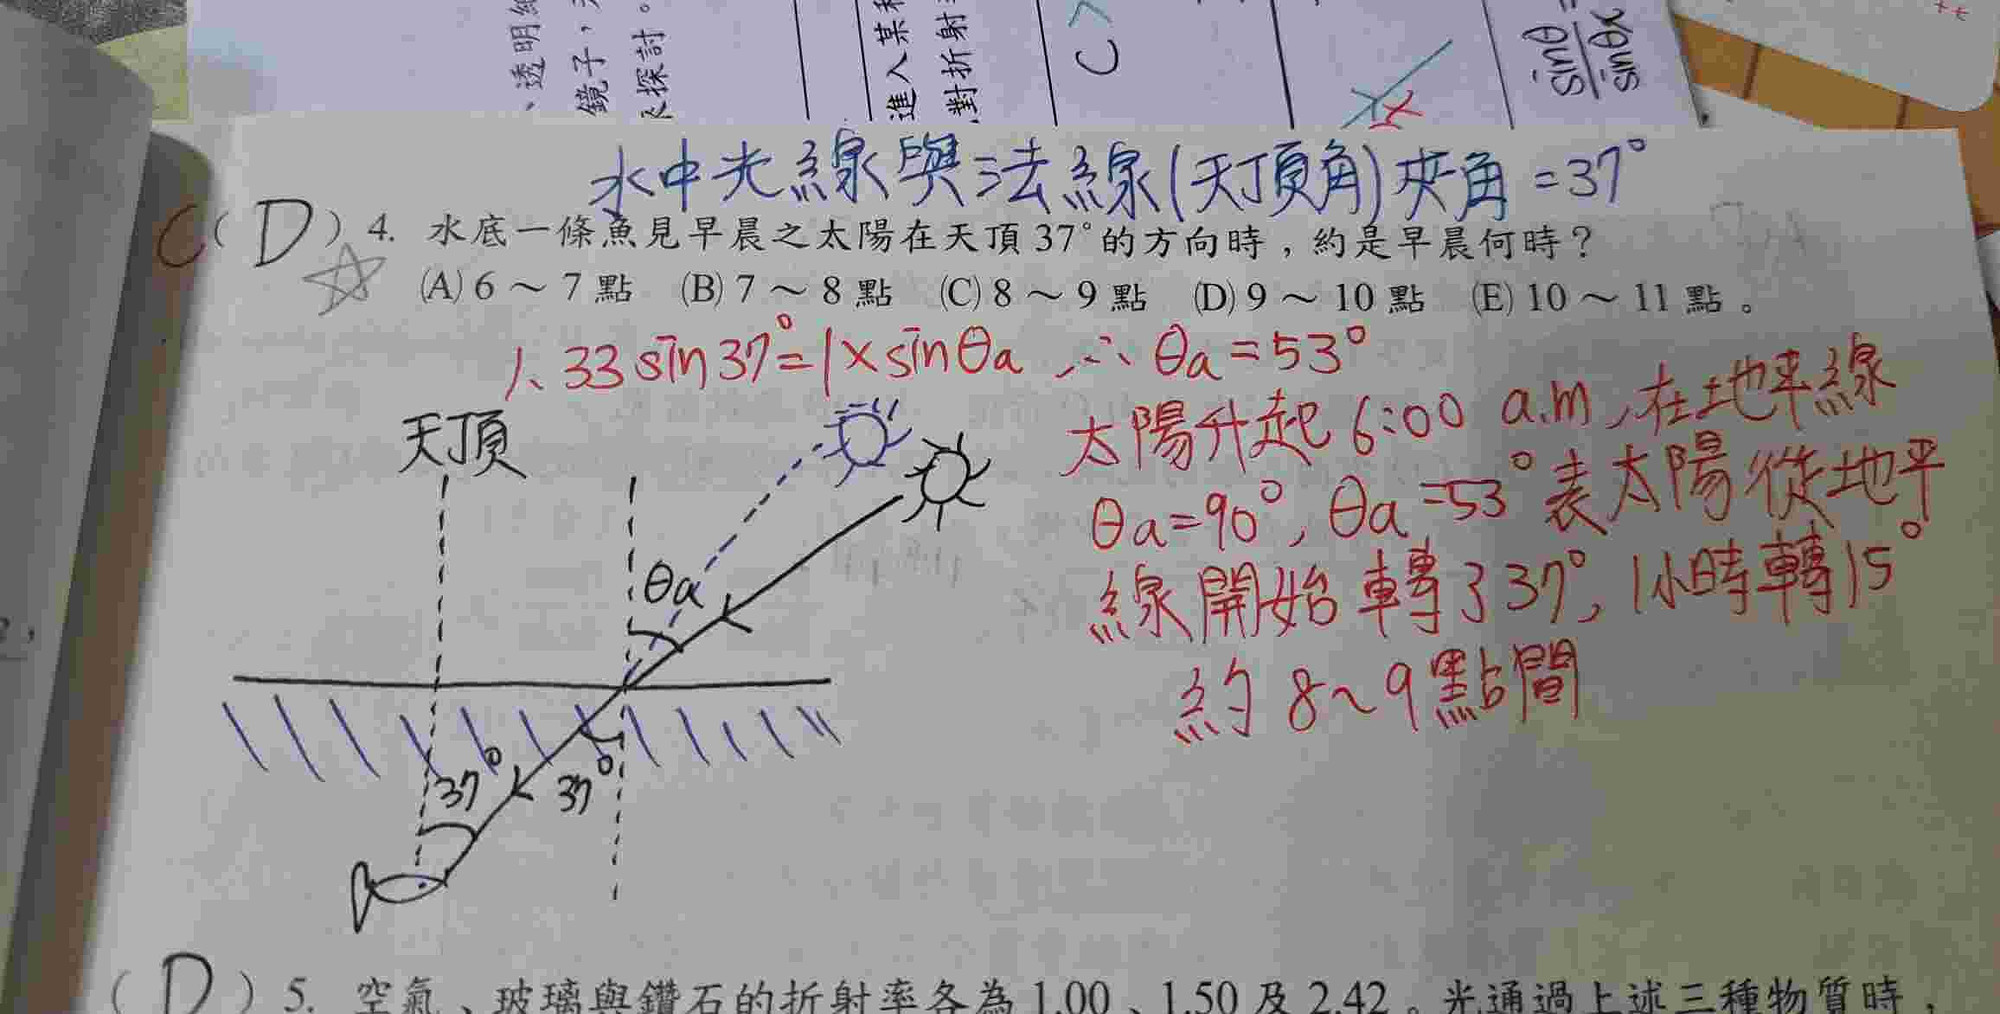 、透明
鏡子，
探討。
進入某
對折射
C >
sinθ
xθuis
水中光線與法線(天頂角)夾角=37°
C ( D ) 4. 水底一條魚見早晨之太陽在天頂 37°的方向時，約是早晨何時？
(A) 6 ～ 7 點 (B) 7 ～ 8 點 (C) 8 ～ 9 點 (D) 9 ～ 10 點 (E) 10 ～ 11 點。
1.33 sin37°=1×sinθa ,∴ θa=53°
太陽升起 6:00 a.m,在地平線
θa=90°, θa=53°表太陽從地平
線開始轉了37°, 1小時轉15°
約 8~9點間
天頂
θa
37°
37°
( D ) 5. 空氣、玻璃與鑽石的折射率各為 1.00、1.50 及 2.42。光通過上述三種物質時，